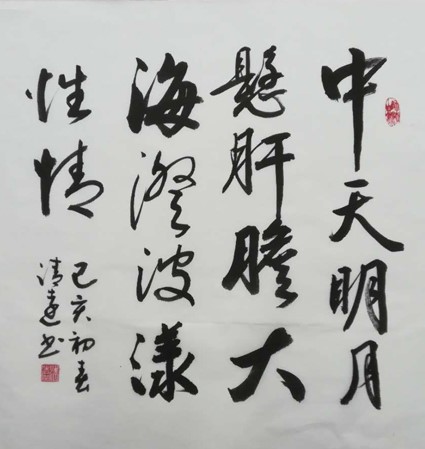 中天明月
懸肝膽大
海澄波漾
性情
己亥初春
清逵书